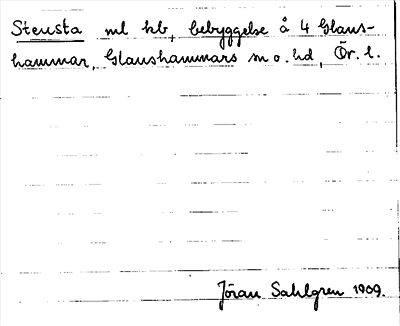 Stensta ml kb, bebyggelse å 4 Glans-
hammar, Glanshammars sn o. hd, Ör. l.
Jöran Sahlgren 1909.